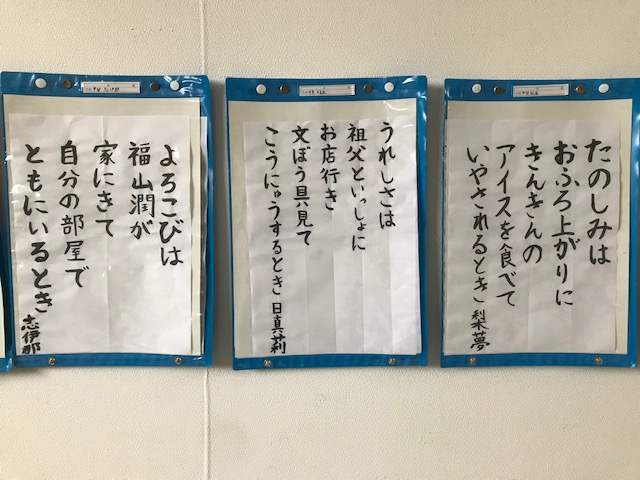 たのしみは
おふろ上がりに
きんきんの
アイスを食べて
いやされるとき 梨来夢
うれしさは
祖父といっしょに
お店行き
文ぼう具見て
こうにゅうするとき 日真莉
よろこびは
福山潤が
家にきて
自分の部屋で
ともにいるとき 志伊那